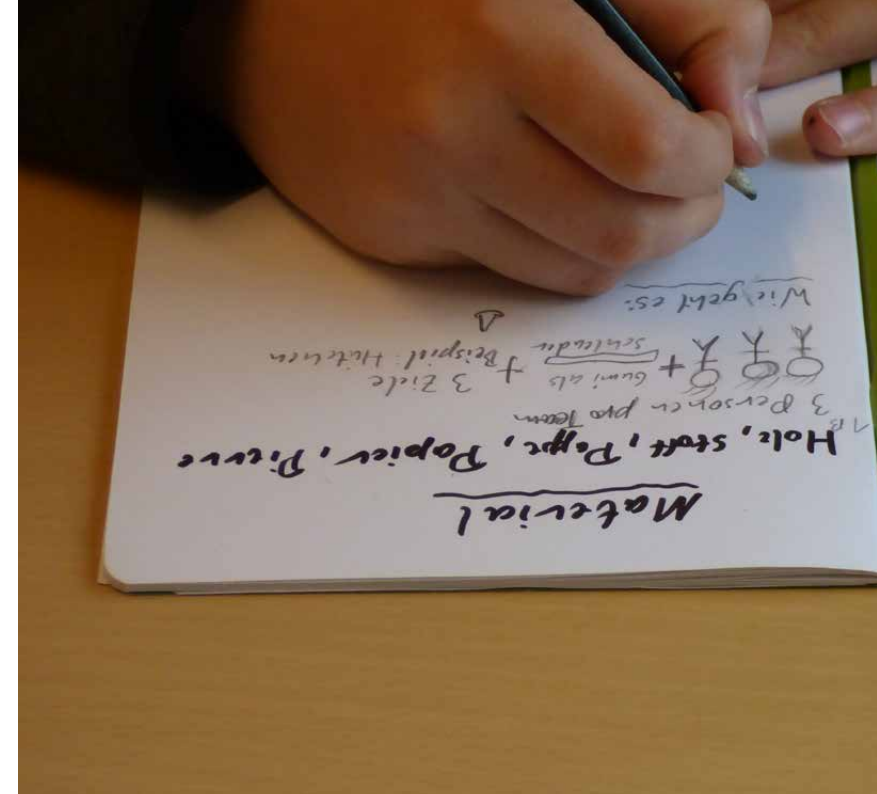 Material
Holz, Stoff, Pappe, Papier, Pierre
3 Personen pro Team
+ Gumi als Schleuder + 3 Ziele
Beispiel: Hütchen
Wie geht es: